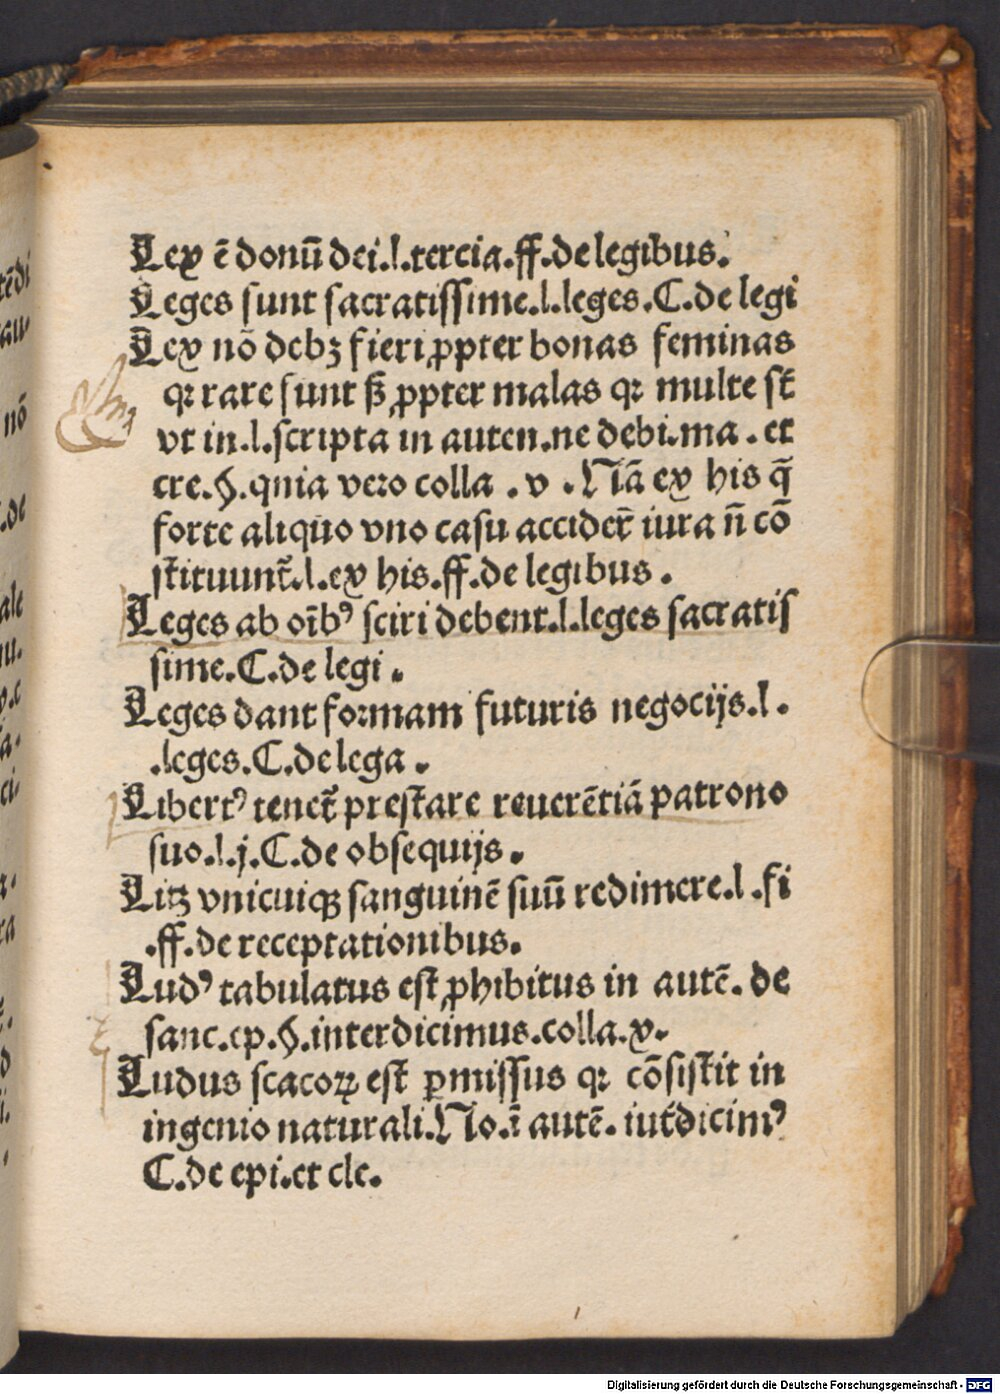 Lex ē donū dei.l.tercia.ff.de legibus.
Leges sunt sacratissime.l.leges.C.de legi
Lex nō debꝫ fieri ꝓpter bonas feminas
qꝛ rare sunt ſꝫ ꝓpter malas qꝛ multe st̄
vt in.l.scripta in auten.ne debi.ma.et
cre.§.qnia vero colla.v.Nā ex his q̄
forte aliquo vno casu accider̄ iura n̄ cō
stituunt̄.l.ex his.ff.de legibus.
Leges ab oīb⁹ sciri debent.l.leges sacratis
sime.C.de legi.
Leges dant formam futuris negocijs.l.
.leges.C.de lega.
Libert⁹ tenet̄ prestare reuerētiā patrono
suo.l.j.C.de obsequijs.
Litꝫ vnicuiqꝫ sanguinē suū redimere.l.fi
.ff.de receptationibus.
Lud⁹ tabulatus est ꝓhibitus in autē.de
sanc.ep.§.interdicimus.colla.x.
Ludus scacoꝝ est ꝑmissus qꝛ cōsistit in
ingenio naturali.No.ī autē.int̄dicim⁹
C.de epi.et cle.
Digitalisierung gefördert durch die Deutsche Forschungsgemeinschaft - DFG